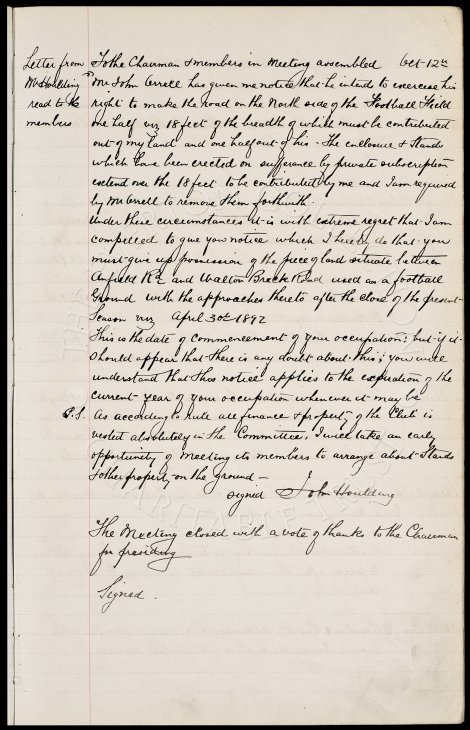 Letter from To the Chairman & members in Meeting assembled Oct 12th
Mr Houlding Mr John Orrell has given me notice that he intends to exercise his
read to the right to make the road on the North side of the Football Field
members one half viz 18 feet of the breadth of which must be contributed
out of my land and one half out of his. The enclosure & Stands
which have been erected on sufferance by private subscription
extend over the 18 feet to be contributed by me and I am required
by Mr Orrell to remove them forthwith.
Under these circumstances it is with extreme regret that I am
compelled to give you notice which I hereby do that you
must give up possession of the piece of land situate between
Anfield Rd and Walton Breck Road used as a football
Ground with the approaches thereto after the close of the present
Season viz April 30th 1892
This is the date of commencement of your occupation; but if it
should appear that there is any doubt about this; you will
understand that this notice applies to the expiration of the
current year of your occupation whenever it may be
P.S. As according to rule all finance & property of the Club is
vested absolutely in the Committee, I will take an early
opportunity of meeting its members to arrange about Stands
& other property on the ground —
signed John Houlding
The Meeting closed with a vote of thanks to the Chairman
for presiding
Signed.